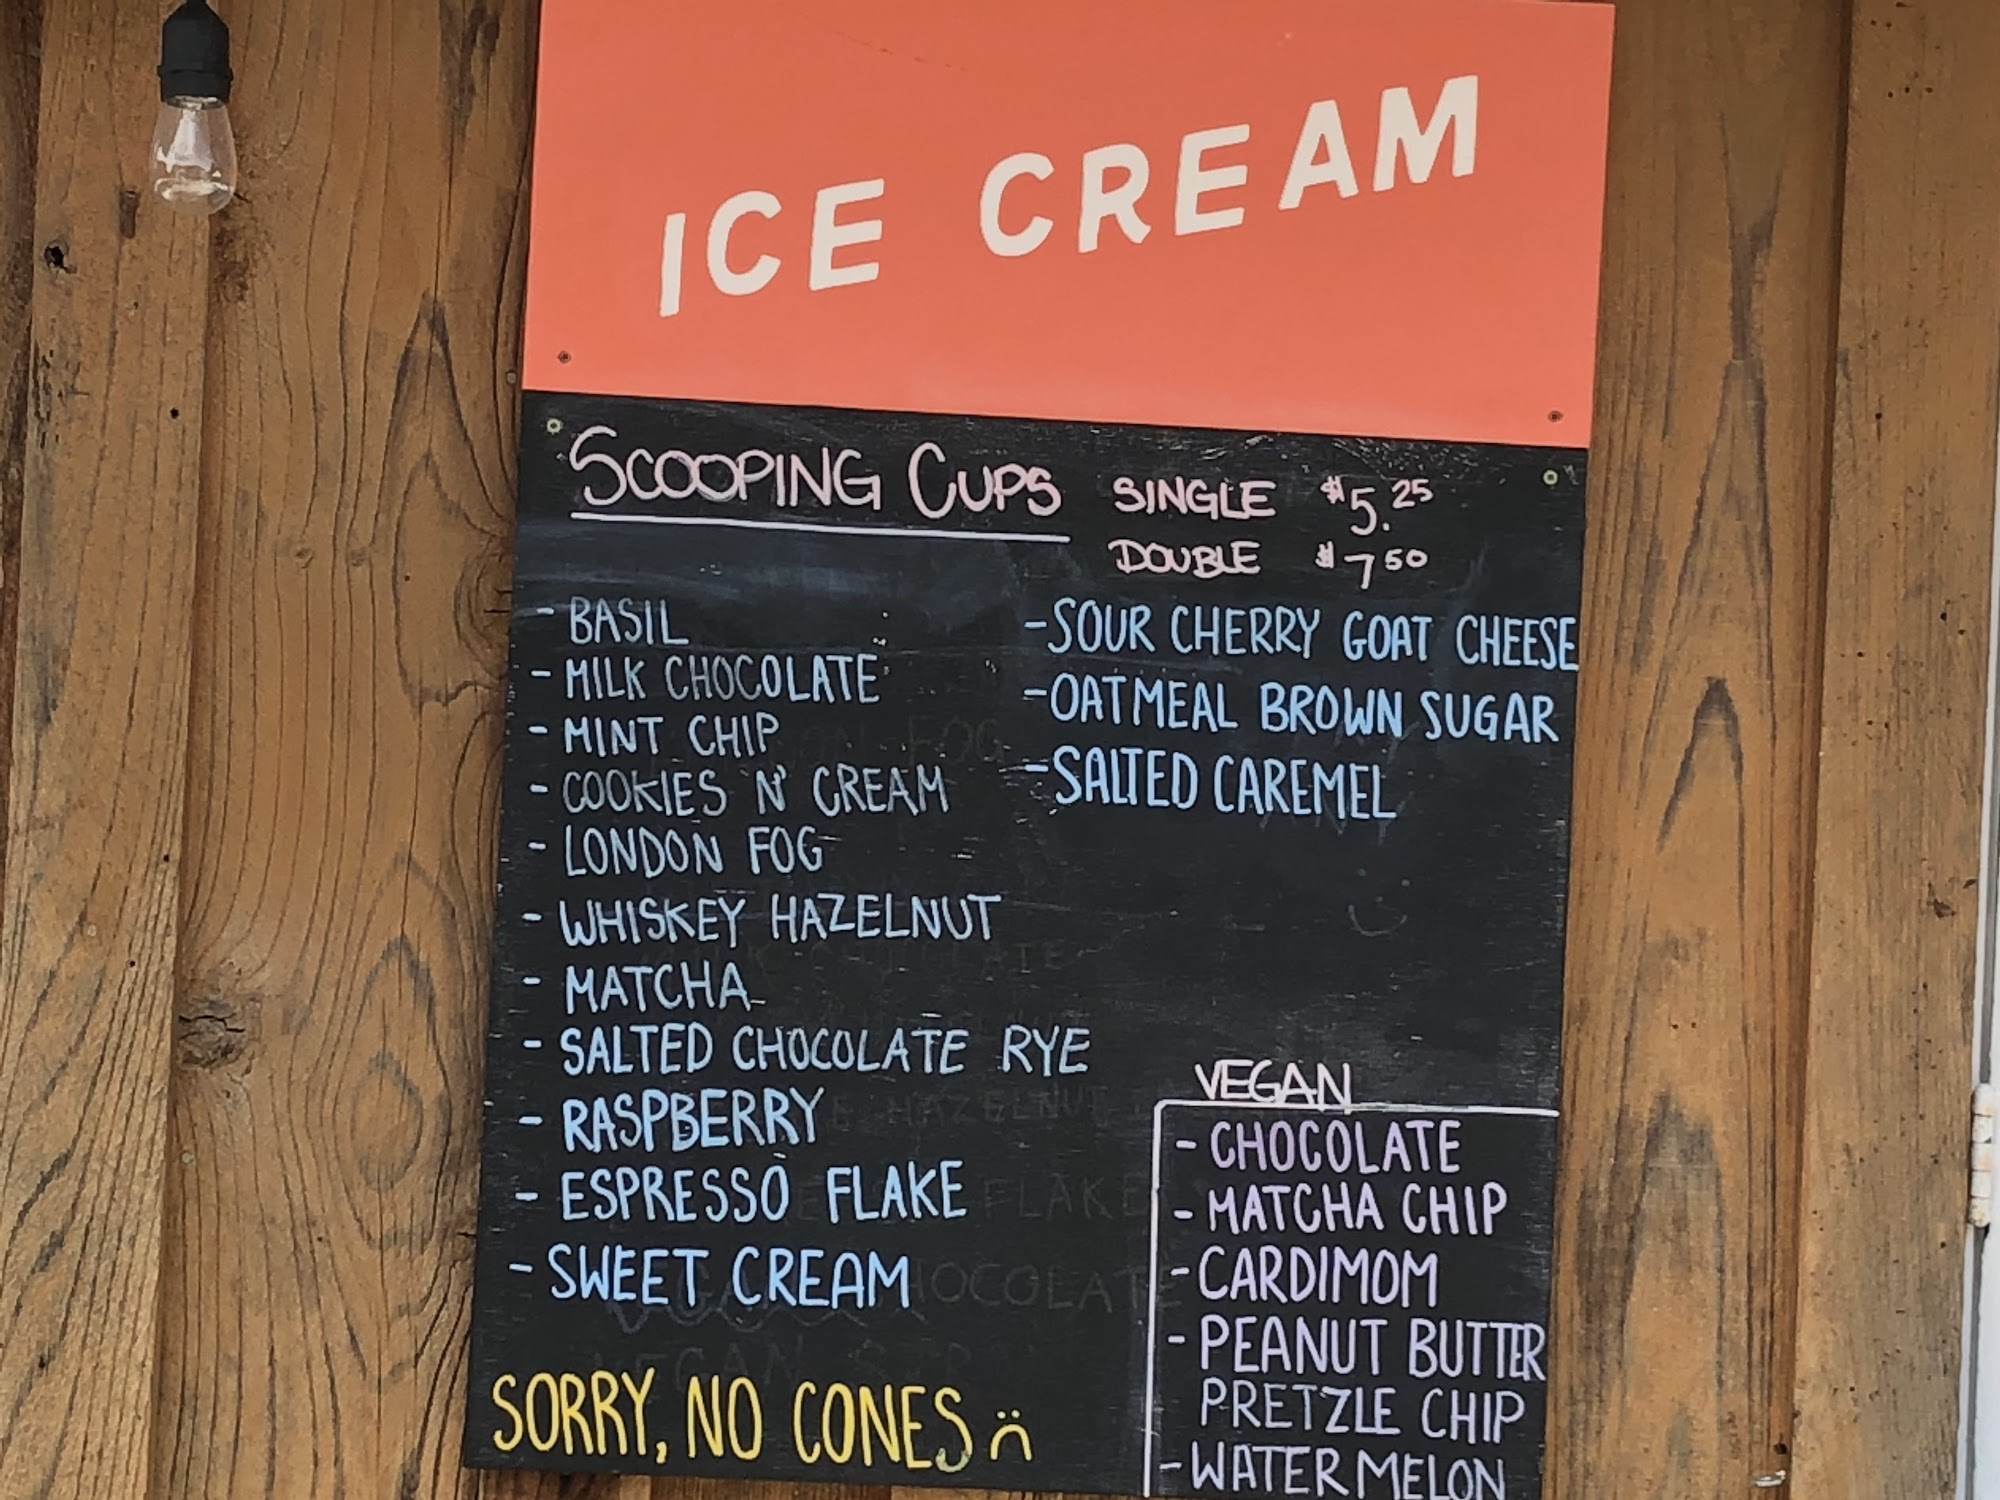 ICE CREAM
SCOOPING CUPS
SINGLE $5.25
DOUBLE $7 50
- BASIL
- MILK CHOCOLATE
- MINT CHIP
- COOKIES N' CREAM
- LONDON FOG
- WHISKEY HAZELNUT
- MATCHA
- SALTED CHOCOLATE RYE
- RASPBERRY
- ESPRESSO FLAKE
- SWEET CREAM
- SOUR CHERRY GOAT CHEESE
- OATMEAL BROWN SUGAR
- SALTED CAREMEL
VEGAN
- CHOCOLATE
- MATCHA CHIP
- CARDIMOM
- PEANUT BUTTER
PRETZLE CHIP
- WATERMELON
SORRY, NO CONES